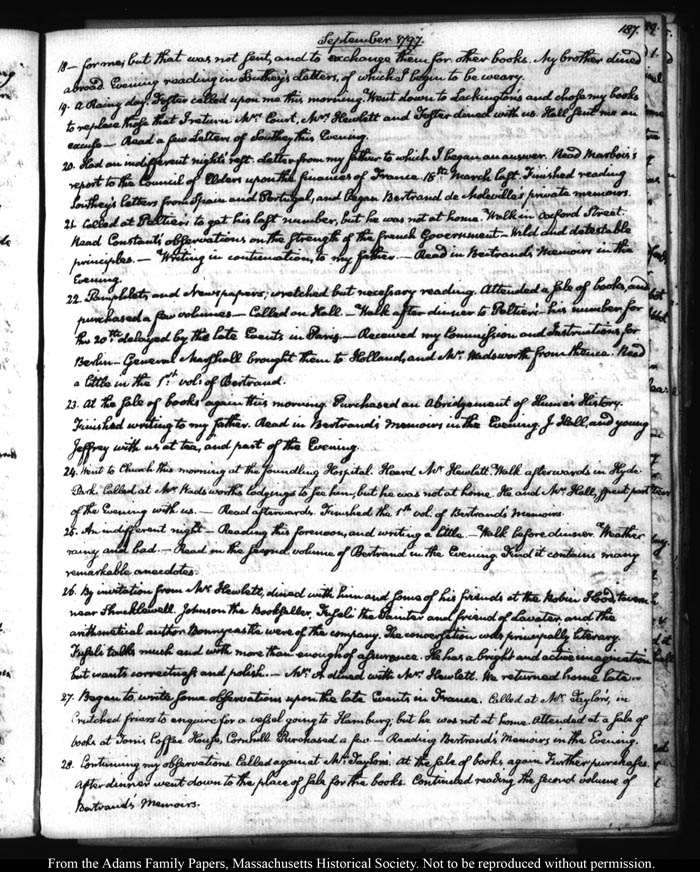 September 1797.
187.
18 — for me, but that was not sent, and to exchange them for other books. My brother dined
abroad. Evening reading in Southey's Letters, of which I begin to be weary.
19. A Rainy day. Foster called upon me this morning. Went down to Lackington's and chose my books
to replace those that I return. Mrs. Court, Mrs. Hewlett and Foster dined with us. Hall sent me an
excuse — Read a few Letters of Southey this Evening.
20. Had an indifferent night's rest. Letter from my father to which I began an answer. Read Marbois's
report to the Council of Elders upon the finances of France 18th. March last. Finished reading
Southey's letters from Spain and Portugal, and began Bertrand de Moleville's private memoirs.
21. Called at Peltier's to get his last number, but he was not at home. Walk in Oxford Street.
Read Constant's observations on the strength of the french Government — Wild and detestable
principles. — Writing in continuation, to my father. — Read in Bertrand's Memoirs in the
Evening.
22. Pamphlets, and Newspapers; wretched but necessary reading. Attended a sale of books, and
purchased a few volumes — Called on Hall — Walk after dinner to Peltier's his number for
the 20th. delayed by the late Events in Paris. — Received my Commission and Instructions, for
Berlin — General Marshall brought them to Holland, and Mr. Wadsworth from thence. Read
a little in the 1st. vol: of Bertrand.
23. At the sale of books again this morning. Purchased an Abridgement of Hume's History.
Finished writing to my father. Read in Bertrand's Memoirs in the Evening. J. Hall, and young
Jeffrey with us at tea, and part of the Evening.
24. Went to Church this morning at the foundling Hospital. Heard Mr. Hewlett. Walk afterwards in Hyde
Park. Called at Mr. Wadsworth's lodgings to see him, but he was not at home. He and Mr. Hall, spent part
of the Evening with us. — Read afterwards. Finished the 1st. vol. of Bertrand's Memoirs.
25. An indifferent night — Reading this forenoon, and writing a little. — Walk before dinner. Weather
rainy and bad. — Read in the second volume of Bertrand in the Evening. Find it contains many
remarkable anecdotes.
26. By invitation from Mr. Hewlett, dined with him and some of his friends at the Robin Hood tavern
near Shacklewell. Johnson the Bookseller, Fuseli the Painter and friend of Lavater, and the
arithmetical author Bonnycastle were of the company. The conversation was principally literary.
Fuseli talks much and with more than enough of assurance. He has a bright and active imagination
but wants correctness and polish. — Mrs. A dined with Mrs. Hewlett. We returned home late. —
27. Began to write some observations upon the late Events in France. Called at Mr. Taylor's, in
Crutched friars to enquire for a vessel going to Hamburg; but he was not at home. Attended at a sale of
books at Tom's Coffee House, Cornhill. Purchased a few — Reading Bertrand's Memoirs in the Evening.
28. Continuing my observations. Called again at Mr. Taylor's. At the sale of books again. Further purchases.
After dinner went down to the place of sale for the books. Continued reading the second volume of
Bertrand's Memoirs.
From the Adams Family Papers, Massachusetts Historical Society. Not to be reproduced without permission.